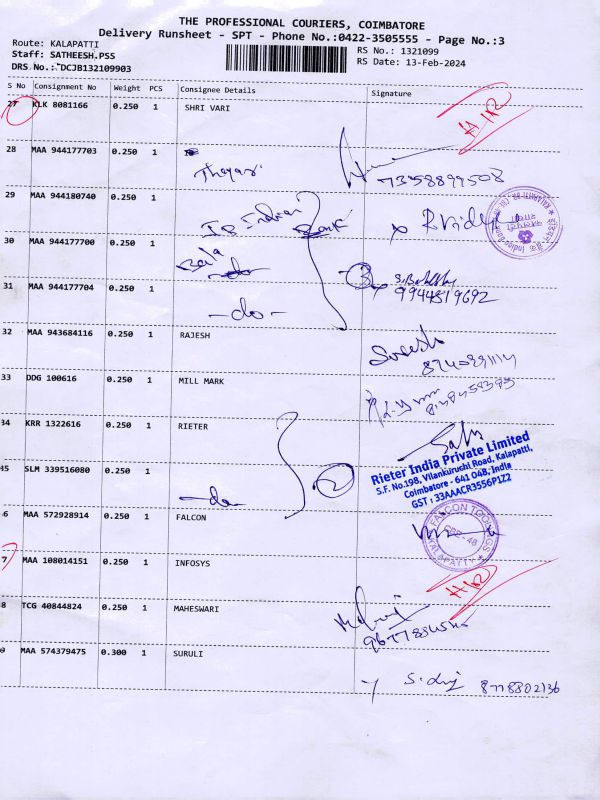 THE PROFESSIONAL COURIERS, COIMBATORE
Delivery Runsheet - SPT - Phone No.:0422-3505555 - Page No.:3
Route: KALAPATTI
Staff: SATHEESH.PSS
DRS No.: DCJB132109903
RS No.: 1321099
RS Date: 13-Feb-2024
S No Consignment No Weight PCS Consignee Details Signature
27 KLK 8081166 0.250 1 SHRI VARI
28 MAA 944177703 0.250 1
7358899508
29 MAA 944180740 0.250 1
Indian Bank
30 MAA 944177700 0.250 1
-do-
31 MAA 944177704 0.250 1
9944819692
-do-
32 MAA 943684116 0.250 1 RAJESH
Suresh
33 DDG 100616 0.250 1 MILL MARK
34 KRR 1322616 0.250 1 RIETER
Rieter India Private Limited
S.F. No.198, Vilankuruchi Road, Kalapatti,
Coimbatore - 641 048, India
GST : 33AAACR3556P1Z2
35 SLM 339516080 0.250 1
-do
2
6 MAA 572928914 0.250 1 FALCON
FALCON TOOLINGS
CBE-48
KALAPATTY
7 MAA 108014151 0.250 1 INFOSYS
8 TCG 40844824 0.250 1 MAHESWARI
9 MAA 574379475 0.300 1 SURULI
8778802136